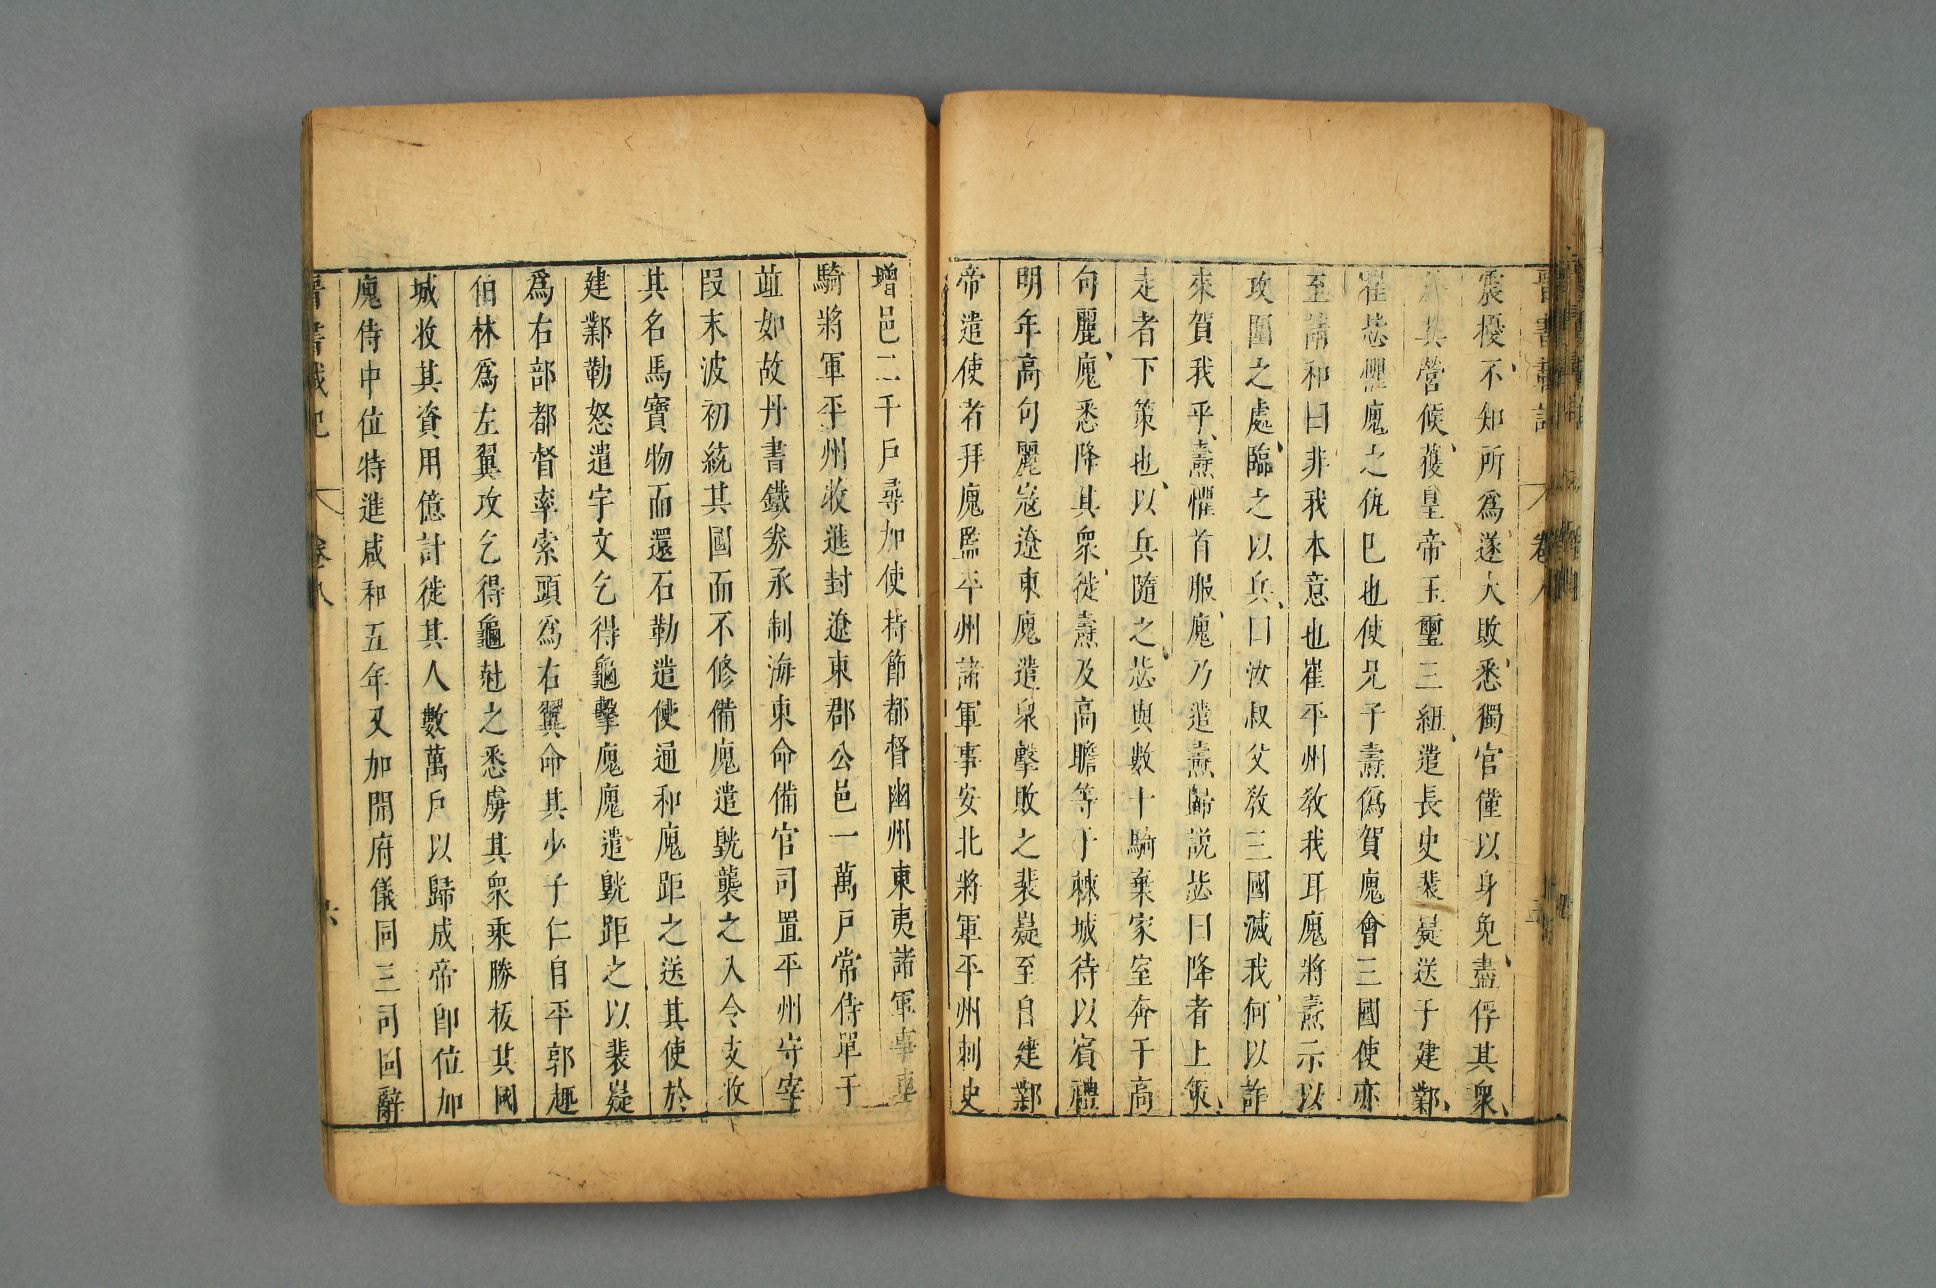 晉書載記 卷八
震擾不知所爲遂大敗悉獨官僅以身免盡俘其衆
於其營候獲皇帝玉璽三紐遣長史裴嶷送于建鄴
崔毖懼廆之仇已也使兄子燾僞賀廆會三國使亦
至請和曰非我本意也崔平州教我耳廆將燾示以
攻圍之處臨之以兵曰汝叔父教三國滅我何以詐
來賀我乎燾懼首服廆乃遣燾歸說毖曰降者上策
走者下策也以兵隨之毖與數十騎棄家室奔于高
句麗廆悉降其衆徙燾及高瞻等于棘城待以賓禮
明年高句麗寇遼東廆遣衆擊敗之裴嶷至自建鄴
帝遣使者拜廆監平州諸軍事安北將軍平州刺史
增邑二千戶尋加使持節都督幽州東夷諸軍事車
騎將軍平州牧進封遼東郡公邑一萬戶常侍單于
並如故丹書鐵券承制海東命備官司置平州守宰
段末波初統其國而不修備廆遣皝襲之入令支收
其名馬寶物而還石勒遣使通和廆距之送其使於
建鄴勒怒遣宇文乞得龜擊廆廆遣皝距之以裴嶷
爲右部都督率索頭爲右翼命其少子仁自平郭趣
伯林爲左翼攻乞得龜尅之悉虜其衆乘勝拔其國
城收其資用億計徙其人數萬戶以歸成帝卽位加
廆侍中位特進咸和五年又加開府儀同三司固辭
晉書載記 卷八 六